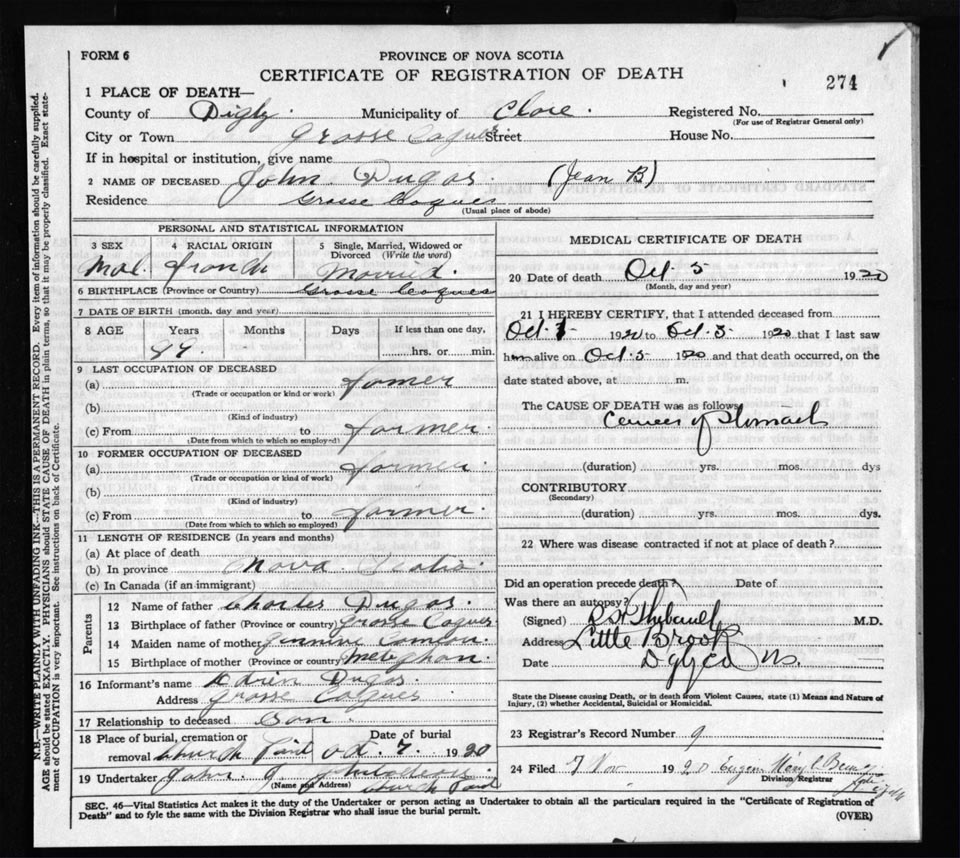 FORM 6
PROVINCE OF NOVA SCOTIA
CERTIFICATE OF REGISTRATION OF DEATH
274
1 PLACE OF DEATH—
County of Digby. Municipality of Clare. Registered No.
(For use of Registrar General only)
City or Town Grosse Coques Street House No.
If in hospital or institution, give name
2 NAME OF DECEASED John. Dugas. (Jean B)
Residence Grosse Coques
(Usual place of abode)
PERSONAL AND STATISTICAL INFORMATION
3 SEX 4 RACIAL ORIGIN 5 Single, Married, Widowed or Divorced (Write the word)
Mal. Married.
6 BIRTHPLACE (Province or Country) Grosse Coques
7 DATE OF BIRTH (month, day and year)
8 AGE Years Months Days If less than one day,
hrs. or min.
9 LAST OCCUPATION OF DECEASED
(a) farmer
(Trade or occupation or kind or work)
(b)
(Kind of industry)
(c) From to farmer.
(Date from which to which so employed)
10 FORMER OCCUPATION OF DECEASED
(a) farmer.
(Trade or occupation or kind of work)
(b)
(Kind of industry)
(c) From to farmer.
(Date from which to which so employed)
11 LENGTH OF RESIDENCE (In years and months)
(a) At place of death
(b) In province Nova Scotia.
(c) In Canada (if an immigrant)
Parents
12 Name of father Charles Dugas.
13 Birthplace of father (Province or country) Grosse Coques
14 Maiden name of mother
15 Birthplace of mother (Province or country) Meteghan.
16 Informant's name Dugas
Address Grosse Coques
17 Relationship to deceased Son
18 Place of burial, cremation or removal Church Date of burial Oct. 7. 1920
19 Undertaker John. J.
(Name and Address) Church
MEDICAL CERTIFICATE OF DEATH
20 Date of death Oct. 5 1920
(Month, day and year)
21 I HEREBY CERTIFY, that I attended deceased from
Oct. 1 1920 to Oct. 5 1920 that I last saw
him alive on Oct. 5 1920 and that death occurred, on the
date stated above, at m.
The CAUSE OF DEATH was as follows
Cancer of Stomach
(duration) yrs. mos. dys
CONTRIBUTORY
(Secondary)
(duration) yrs. mos. dys.
22 Where was disease contracted if not at place of death?
Did an operation precede death? Date of
Was there an autopsy?
(Signed) M.D.
Address Little Brook
Date Digby Co NS.
State the Disease causing Death, or in death from Violent Causes, state (1) Means and Nature of
Injury, (2) whether Accidental, Suicidal or Homicidal.
23 Registrar's Record Number 9
24 Filed 7 Nov 1920
Division Registrar
SEC. 46—Vital Statistics Act makes it the duty of the Undertaker or person acting as Undertaker to obtain all the particulars required in the "Certificate of Registration of
Death" and to fyle the same with the Division Registrar who shall issue the burial permit. (OVER)
N.B.—WRITE PLAINLY WITH UNFADING INK—THIS IS A PERMANENT RECORD. Every item of information should be carefully supplied.
AGE should be stated EXACTLY. PHYSICIANS should STATE CAUSE OF DEATH in plain terms, so that it may be properly classified. Exact state-
ment of OCCUPATION is very important. See instructions on back of Certificate.